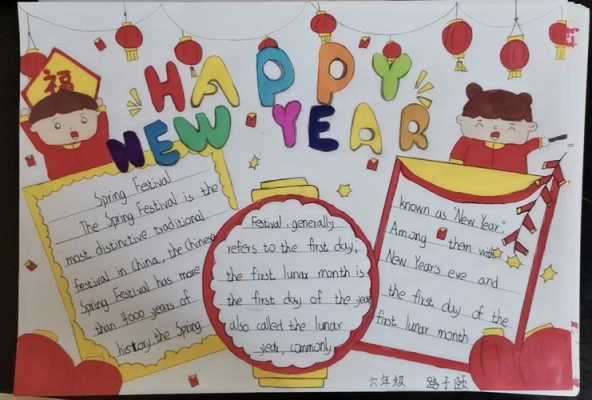 福
HAPPY
NEW YEAR
Spring Festival
The Spring Festival is the
most distinctive traditional
festival in China, the Chinese
Spring Festival has more
than 4000 years of
history. the Spring
Festival, generally
refers to the first day,
the first lunar month is
the first day of the year
also called the lunar
year, commonly
known as "New Year."
Among them with
New Year's eve and
the first day of the
first lunar month
六年级